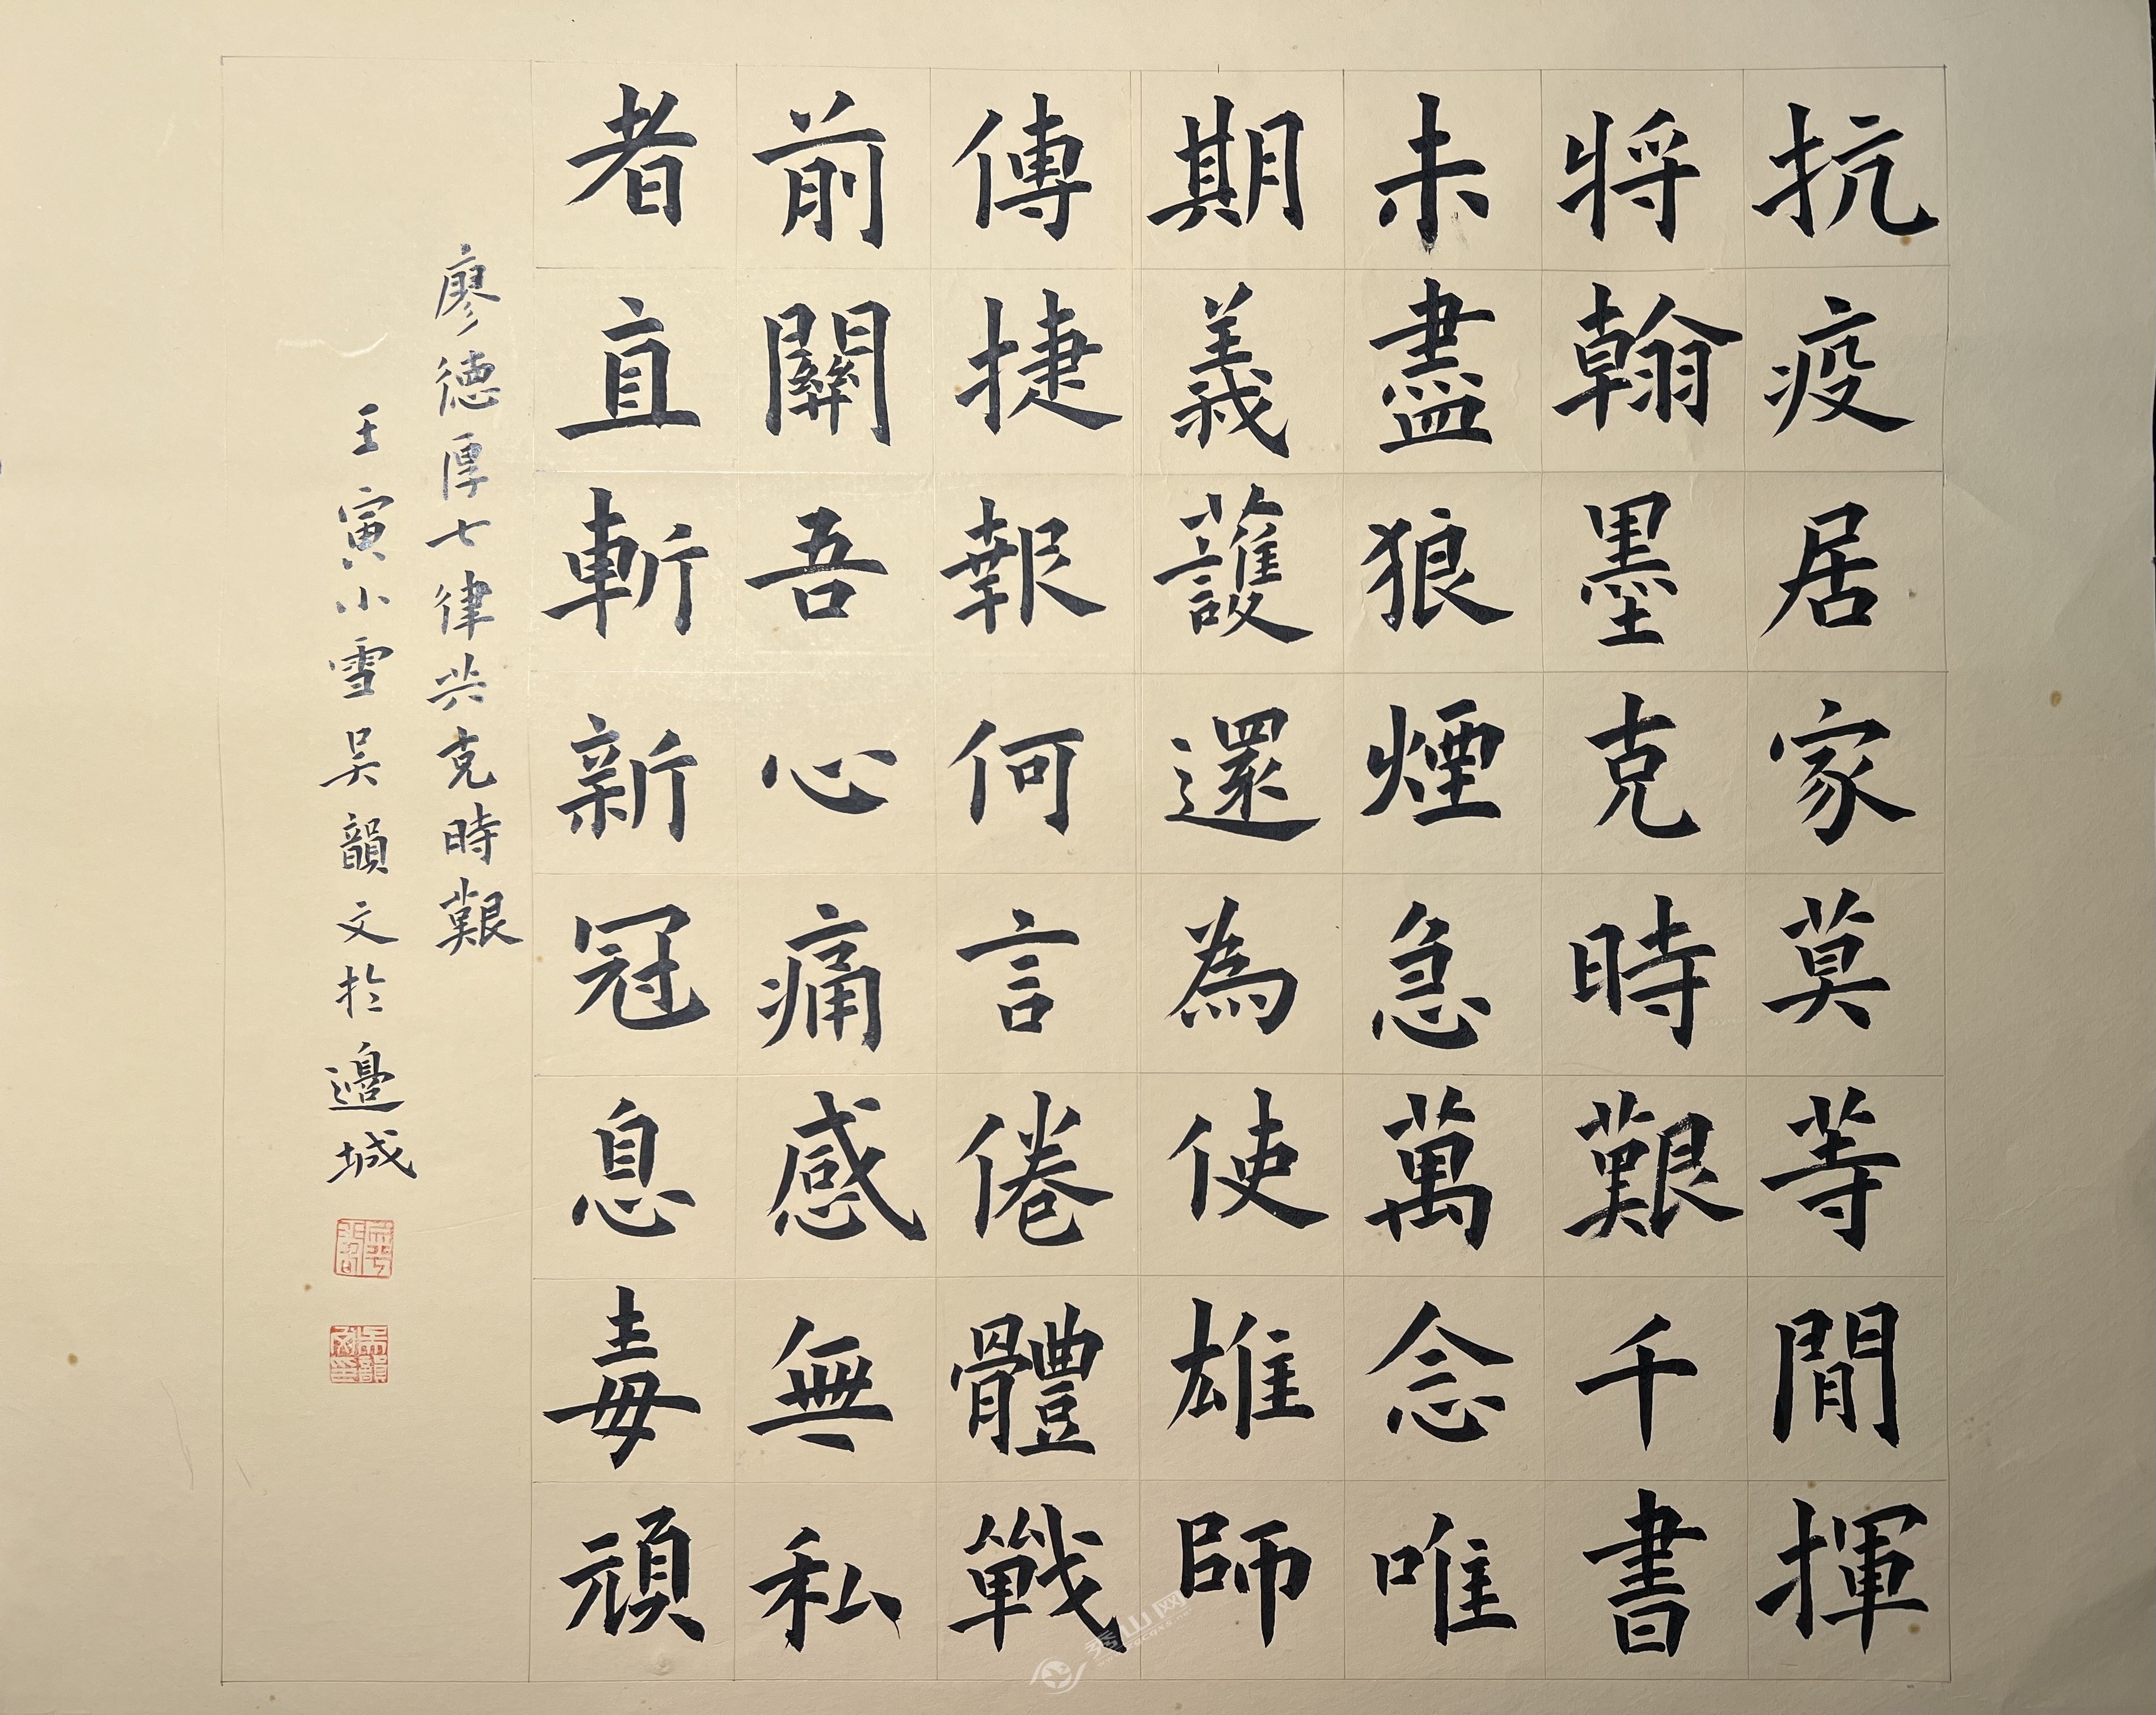 抗疫居家莫等閒揮
將翰墨克時艱千書
未盡狼煙急萬念唯
期義護還為使雄師
傳捷報何言倦體戰
前關吾心痛感無私
者直斬新冠息毒頑
廖德厚七律共克時艱
壬寅小雪吴韻文於邊城
秀山网